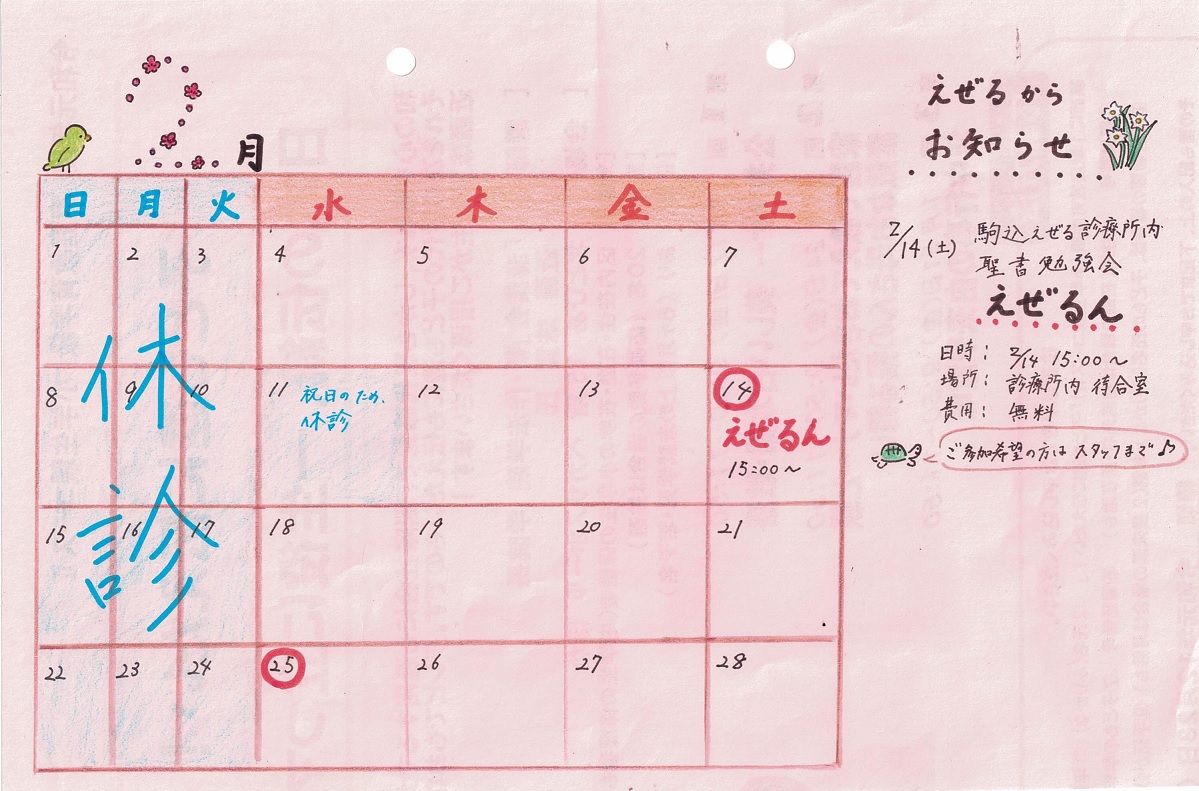 2月
日 月 火 水 木 金 土
1 2 3 4 5 6 7
8 9 10 11 12 13 14
祝日のため、
休診
えぜるん
15:00〜
15 16 17 18 19 20 21
22 23 24 25 26 27 28
休診
えぜるから
お知らせ
2/14(土) 駒込えぜる診療所内
聖書勉強会
えぜるん
日時: 2/14 15:00〜
場所: 診療所内 待合室
費用: 無料
ご参加希望の方は スタッフまで♪